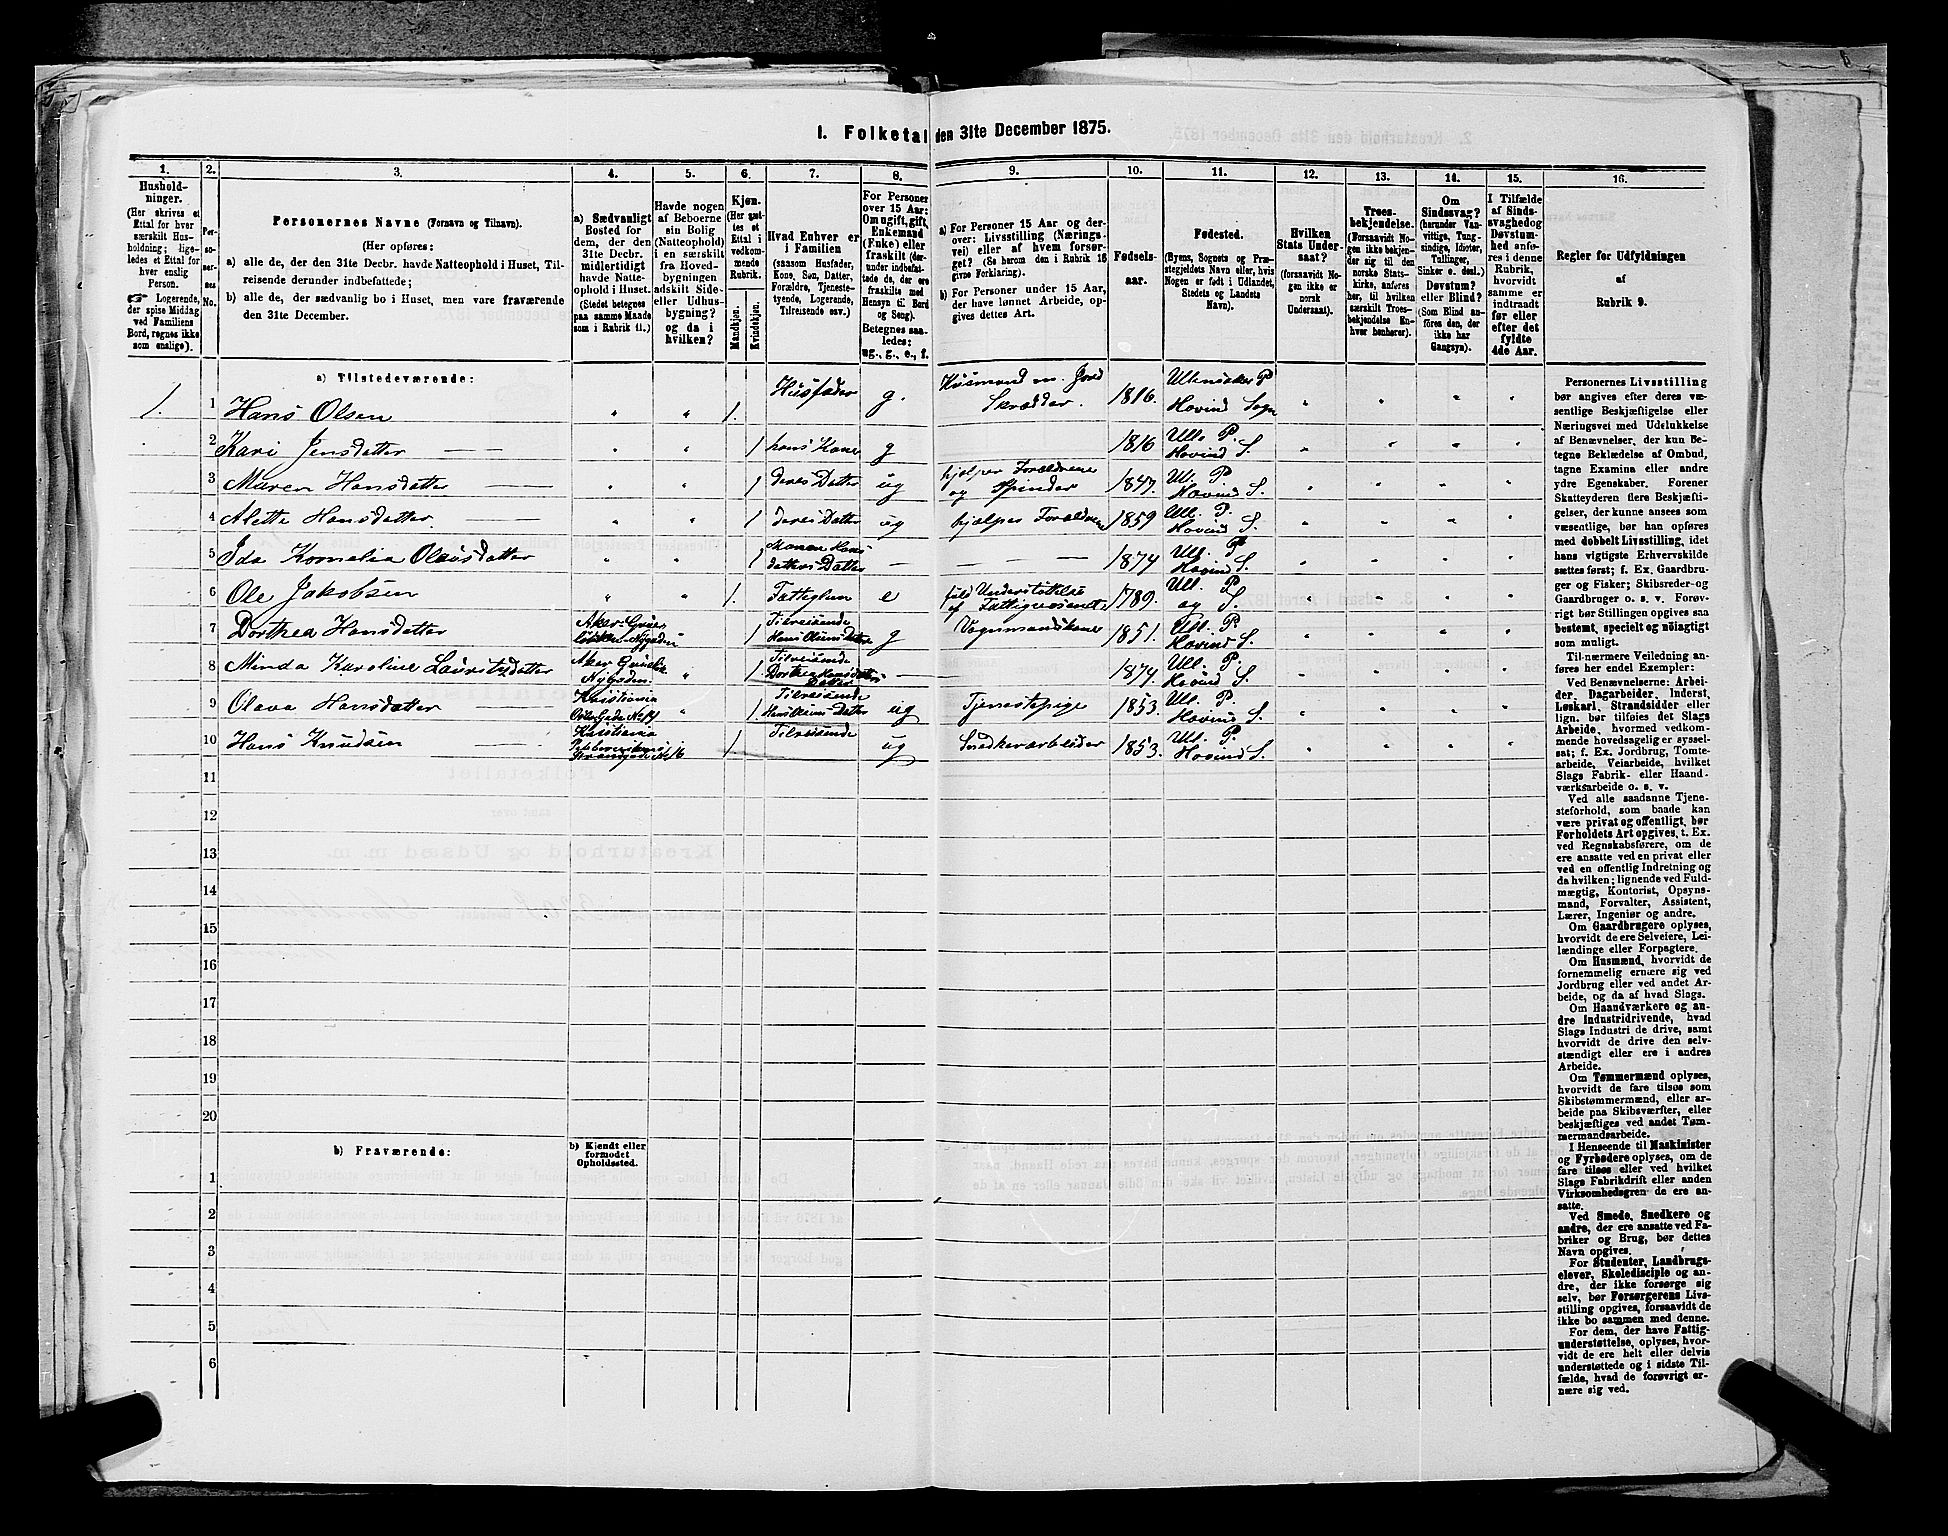 1. Folketal den 31te December 1875.
1. 2. 3. 4. 5. 6. 7. 8. 9. 10. 11. 12. 13. 14. 15. 16.
Hushold-
ninger.
(Her skrives et
Ettal for hver
særskilt Hus-
holdning; lige-
ledes et Ettal for
hver enslig
Person.
☛ Logerende,
der spise Middag
ved Familiens
Bord, regnes ikke
som enslige).
Per-
so-
ner-
nes
No.
Personernes Navne (Fornavn og Tilnavn).
(Her opføres:
a) alle de, der den 31te Decbr. havde Natteophold i Huset, Til-
reisende derunder indbefattede;
b) alle de, der sædvanlig bo i Huset, men vare fraværende
den 31te December.
a) Sædvanligt
Bosted for
dem, der den
31te Decbr.
midlertidigt
havde Natte-
ophold i Huset.
(Stedet betegnes
paa samme Maade
som i Rubrik 11.)
Havde nogen
af Beboerne
sin Bolig
(Natteophold)
i en særskilt
fra Hoved-
bygningen
adskilt Side-
eller Udhus-
bygning?
og da i
hvilken?
Kjøn.
(Her sæt-
tes et
Ettal i
vedkom-
mende
Rubrik.
Mandkjøn.
Kvindekjøn.
Hvad Enhver er
i Familien
(saasom Husfader,
Kone, Søn, Datter,
Forældre, Tjeneste-
tyende, Logerende,
Tilreisende osv.)
For Personer
over 15 Aar:
Om ugift, gift,
Enkemand
(Enke) eller
fraskilt (der-
under indbefat-
tede de, der ere
fraskilte med
Hensyn til Bord
og Seng).
Betegnes saa-
ledes:
ug., g., e., f.
a) For Personer 15 Aar og der-
over: Livsstilling (Nærings-
vei) eller af hvem forsør-
get? (Se herom den i Rubrik 16
givne Forklaring).
b) For Personer under 15 Aar,
der have lønnet Arbeide, op-
gives dettes Art.
Fødsels-
aar.
Fødested.
(Byens, Sognets og Præ-
stegjeldets Navn eller, hvis
Nogen er født i Udlandet,
Stedets og Landets
Navn).
Hvilken
Stats Under-
saat?
(forsaavidt No-
gen ikke er
norsk
Undersaat).
Troes-
bekjendelse.
(Forsaavidt No-
gen ikke bekjen-
der sig til den
norske Stats-
kirke, anføres
her, til hvilken
særskilt Troes-
bekjendelse En-
hver henhører).
Om
Sindssvag?
(herunder Van-
vittige, Tung-
sindige, Idioter,
Tullinger,
Sinker o. desl.)
Døvstum?
eller Blind?
(Som Blind an-
føres den, der
ikke har
Gangsyn).
I Tilfælde
af Sinds-
svaghed og
Døvstum-
hed anfø-
res i denne
Rubrik,
hvorvidt
samme er
indtraadt
før eller
efter det
fyldte
4de Aar.
Regler for Udfyldningen
af
Rubrik 9.
a) Tilstedeværende:
1. 1 Hans Olsen " " 1. Husfader g. Husmand m. Jord Skrædder. 1816. Ullensaker P. Hovind Sogn " " " "
2 Kari Jensdatter " " 1 hans Kone g 1816 Ull. P. Hovind S. " " " "
3 Maren Hansdatter " " 1 deres Datter ug hjælper Forældrene og Spinder 1847. Ul. P. Hovind S. " " " "
4 Alette Hansdatter. " " 1 deres Datter ug hjælper Forældrene 1859 Ul. P. Hovind S. " " " "
5 Ida Kornelia Olausdatter " " 1 Maren Hans datters Datter — — 1874 Ul. P. Hovind S. " " " "
6 Ole Jakobsen " " 1. Fattiglem e fuld Understøttelse af Fattigvæsenet 1789. Ul. P. og S. " " " "
7 Dorthea Hansdatter Aker. Grüner løkken Nygaden " 1 Tilreisende Hans Olsens Datter g Vognmandskone 1851. Ul. P. Hovind S. " " " "
8 Minda Karoline Lauritzdatter Aker Nygaden. " 1 Tilreisende Dorthea Hansdatters Datter — — 1874. Ul. P. Hovind S. " " " "
9 Olava Hansdatter Kristiania Gade No 14 " 1. Tilreisende Hans Olsens Datter ug Tjenestepige 1853. Ul. P. Hovind S. " " " "
10 Hans Knudsen Kristiania Pebbervikens No 16 1. Tilreisende ug Snedkerarbeider 1853. Ul. P. Hovind S. " " " "
11
12
13
14
15
16
17
18
19
20
b) Fraværende:
b) Kjendt eller
formodet
Opholdssted.
1
2
3
4
5
6
Personernes Livsstilling
bør angives efter deres væ-
sentlige Beskjæftigelse eller
Næringsvei med Udelukkelse
af Benævnelser, der kun be-
tegne Beklædelse af Ombud,
tagne Examina eller andre
ydre Egenskaber. Forener
Skatteyderen flere Beskjæfti-
gelser, der kunne ansees som
væsentlige, bør han opføres
med dobbelt Livsstilling, idet
hans vigtigste Erhvervskilde
sættes først; f. Ex. Gaardbru-
ger og Fisker; Skibsreder og
Gaardbruger o. s. v. Forøv-
rigt bør Stillingen opgives saa
bestemt, specielt og nøiagtigt
som muligt.
Til nærmere Veiledning an-
føres her endel Exempler:
Ved Benævnelserne: Arbei-
der, Dagarbeider, Inderst,
Løskarl, Strandsidder eller
lign. bør tilføies det Slags
Arbeide, hvormed vedkom-
mende hovedsagelig er syssel-
sat; f. Ex. Jordbrug, Tomte-
arbeide, Veiarbeide, hvilket
Slags Fabrik- eller Haand-
værksarbeide o. s. v.
Ved alle saadanne Tjene-
steforhold, som baade kan
være privat og offentligt, bør
Forholdets Art opgives, t. Ex.
ved Regnskabsførere, om de
ere ansatte ved en privat eller
ved en offentlig Indretning og
da hvilken; lignende ved Fuld-
mægtig, Kontorist, Opsyns-
mand, Forvalter, Assistent,
Lærer, Ingeniør og andre.
Om Gaardbrugere oplyses,
hvorvidt de ere Selveiere, Lei-
lændinge eller Forpagtere.
Om Husmænd, hvorvidt de
fornemmelig ernære sig ved
Jordbrug eller ved andet Ar-
beide, og da af hvad Slags.
Om Haandværkere og an-
dre Industridrivende, hvad
Slags Industri de drive, samt
hvorvidt de drive den selv-
stændigt eller ere i andres
Arbeide.
Om Tømmermænd oplyses,
hvorvidt de fare tilsøs som
Skibstømmermænd, eller ar-
beide paa Skibsværfter, eller
beskjæftiges ved andet Tøm-
mermandsarbeide.
I Henseende til Maskinister
og Fyrbødere oplyses, om de
fare tilsøs eller ved hvilket
Slags Fabrikdrift eller anden
Virksomhedsgren de ere an-
satte.
Ved Smede, Snedkere og
andre, der ere ansatte ved Fa-
briker og Brug, bør dettes
Navn opgives.
For Studenter, Landbrugs-
elever, Skoledisciple og an-
dre, der ikke forsørge sig
selv, bør Forsørgerens Livs-
stilling opgives, forsaavidt de
ikke bo sammen med denne.
For dem, der have Fattig-
understøttelse, oplyses, hvor-
vidt de ere helt eller delvis
understøttede og i sidste Til-
fælde, hvad de forøvrigt er-
nære sig ved.